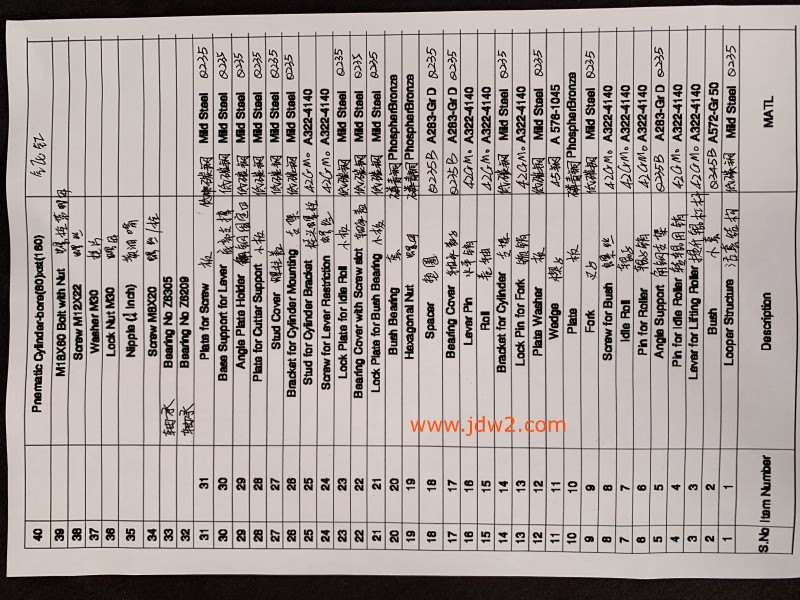 40 Pnematic Cylinder-bore(80)xst(160) 气缸
39 M18X60 Bolt with Nut
38 Screw M12X22 螺丝
37 Washer M30 垫片
36 Lock Nut M30 螺母
35 Nipple (¼ Inch) 黄油嘴
34 Screw M8X20 螺丝/栓
33 轴承 Bearing No Z6305
32 轴承 Bearing No Z6209
31 31 Plate for Screw 板 低碳钢 Mild Steel Q235
30 30 Base Support for Lever 低碳钢 Mild Steel Q235
29 29 Angle Plate Holder 低碳钢 Mild Steel Q235
28 28 Plate for Cutter Support 小板 低碳钢 Mild Steel Q235
27 27 Stud Cover 低碳钢 Mild Steel Q235
26 26 Bracket for Cylinder Mounting 支架 低碳钢 Mild Steel Q235
25 25 Stud for Cylinder Bracket 42CrMo A322-4140
24 24 Screw for Lever Restriction 螺丝 42CrMo A322-4140
23 23 Lock Plate for Idle Roll 小板 低碳钢 Mild Steel Q235
22 22 Bearing Cover with Screw slot 轴承盖 低碳钢 Mild Steel Q235
21 21 Lock Plate for Bush Bearing 小板 低碳钢 Mild Steel Q235
20 20 Bush Bearing 套 磷青铜 PhospherBronze
19 19 Hexagonal Nut 螺母 磷青铜 PhospherBronze
18 18 Spacer 垫圈 Q235B A283-Gr D Q235
17 17 Bearing Cover 轴承盖 Q235B A283-Gr D Q235
16 16 Lever Pin 水平销 42CrMo A322-4140
15 15 Roll 42CrMo A322-4140
14 14 Bracket for Cylinder 支架 低碳钢 Mild Steel Q235
13 13 Lock Pin for Fork 锁销 42CrMo A322-4140
12 12 Plate Washer 板 低碳钢 Mild Steel Q235
11 11 Wedge 楔 45钢 A 576-1045
10 10 Plate 板 磷青铜 PhospherBronze
9 9 Fork 叉 低碳钢 Mild Steel Q235
8 8 Screw for Bush 螺丝 42CrMo A322-4140
7 7 Idle Roll 42CrMo A322-4140
6 6 Pin for Roller 42CrMo A322-4140
5 5 Angle Support 角钢支架 Q235B A283-Gr D Q235
4 4 Pin for Idle Roller 42CrMo A322-4140
3 3 Lever for Lifting Roller 42CrMo A322-4140
2 2 Bush 小套 Q345B A572-Gr 50
1 1 Looper Structure 活套结构 低碳钢 Mild Steel Q235
S.No Item Number Description MATL
www.jdw2.com